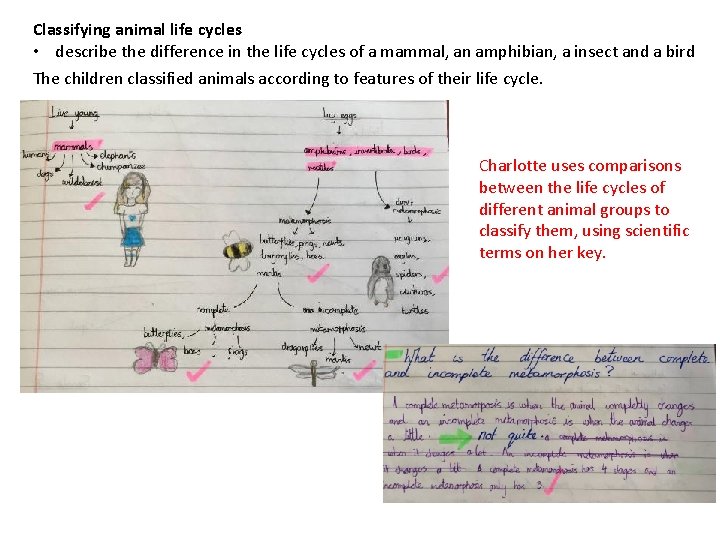 Classifying animal life cycles
• describe the difference in the life cycles of a mammal, an amphibian, a insect and a bird
The children classified animals according to features of their life cycle.
Live young
mammals
humans
elephants
chimpanzees
dogs
wildebeest
lay eggs
amphibians, invertebrates, birds,
reptiles
metamorphosis
butterflies, frogs, newts,
dragonflies, bees,
mantis
metamorphosis
penguins,
spiders,
turtles
complete
metamorphosis
butterflies,
bees
frogs
incomplete
metamorphosis
dragonflies
mantis
newt
Charlotte uses comparisons
between the life cycles of
different animal groups to
classify them, using scientific
terms on her key.
What is the difference between complete
and incomplete metamorphosis?
A complete metamorposis is when the animal completly changes
and an incomplete metamorphosis is when the animal changes
a little. not quite. a complete metamorphosis is
when it changes a lot. An incomplete metamorphosis is when
it changes a bit A complete metamorphosis has 4 stages and an
incomplete metamorphosis only has 3.